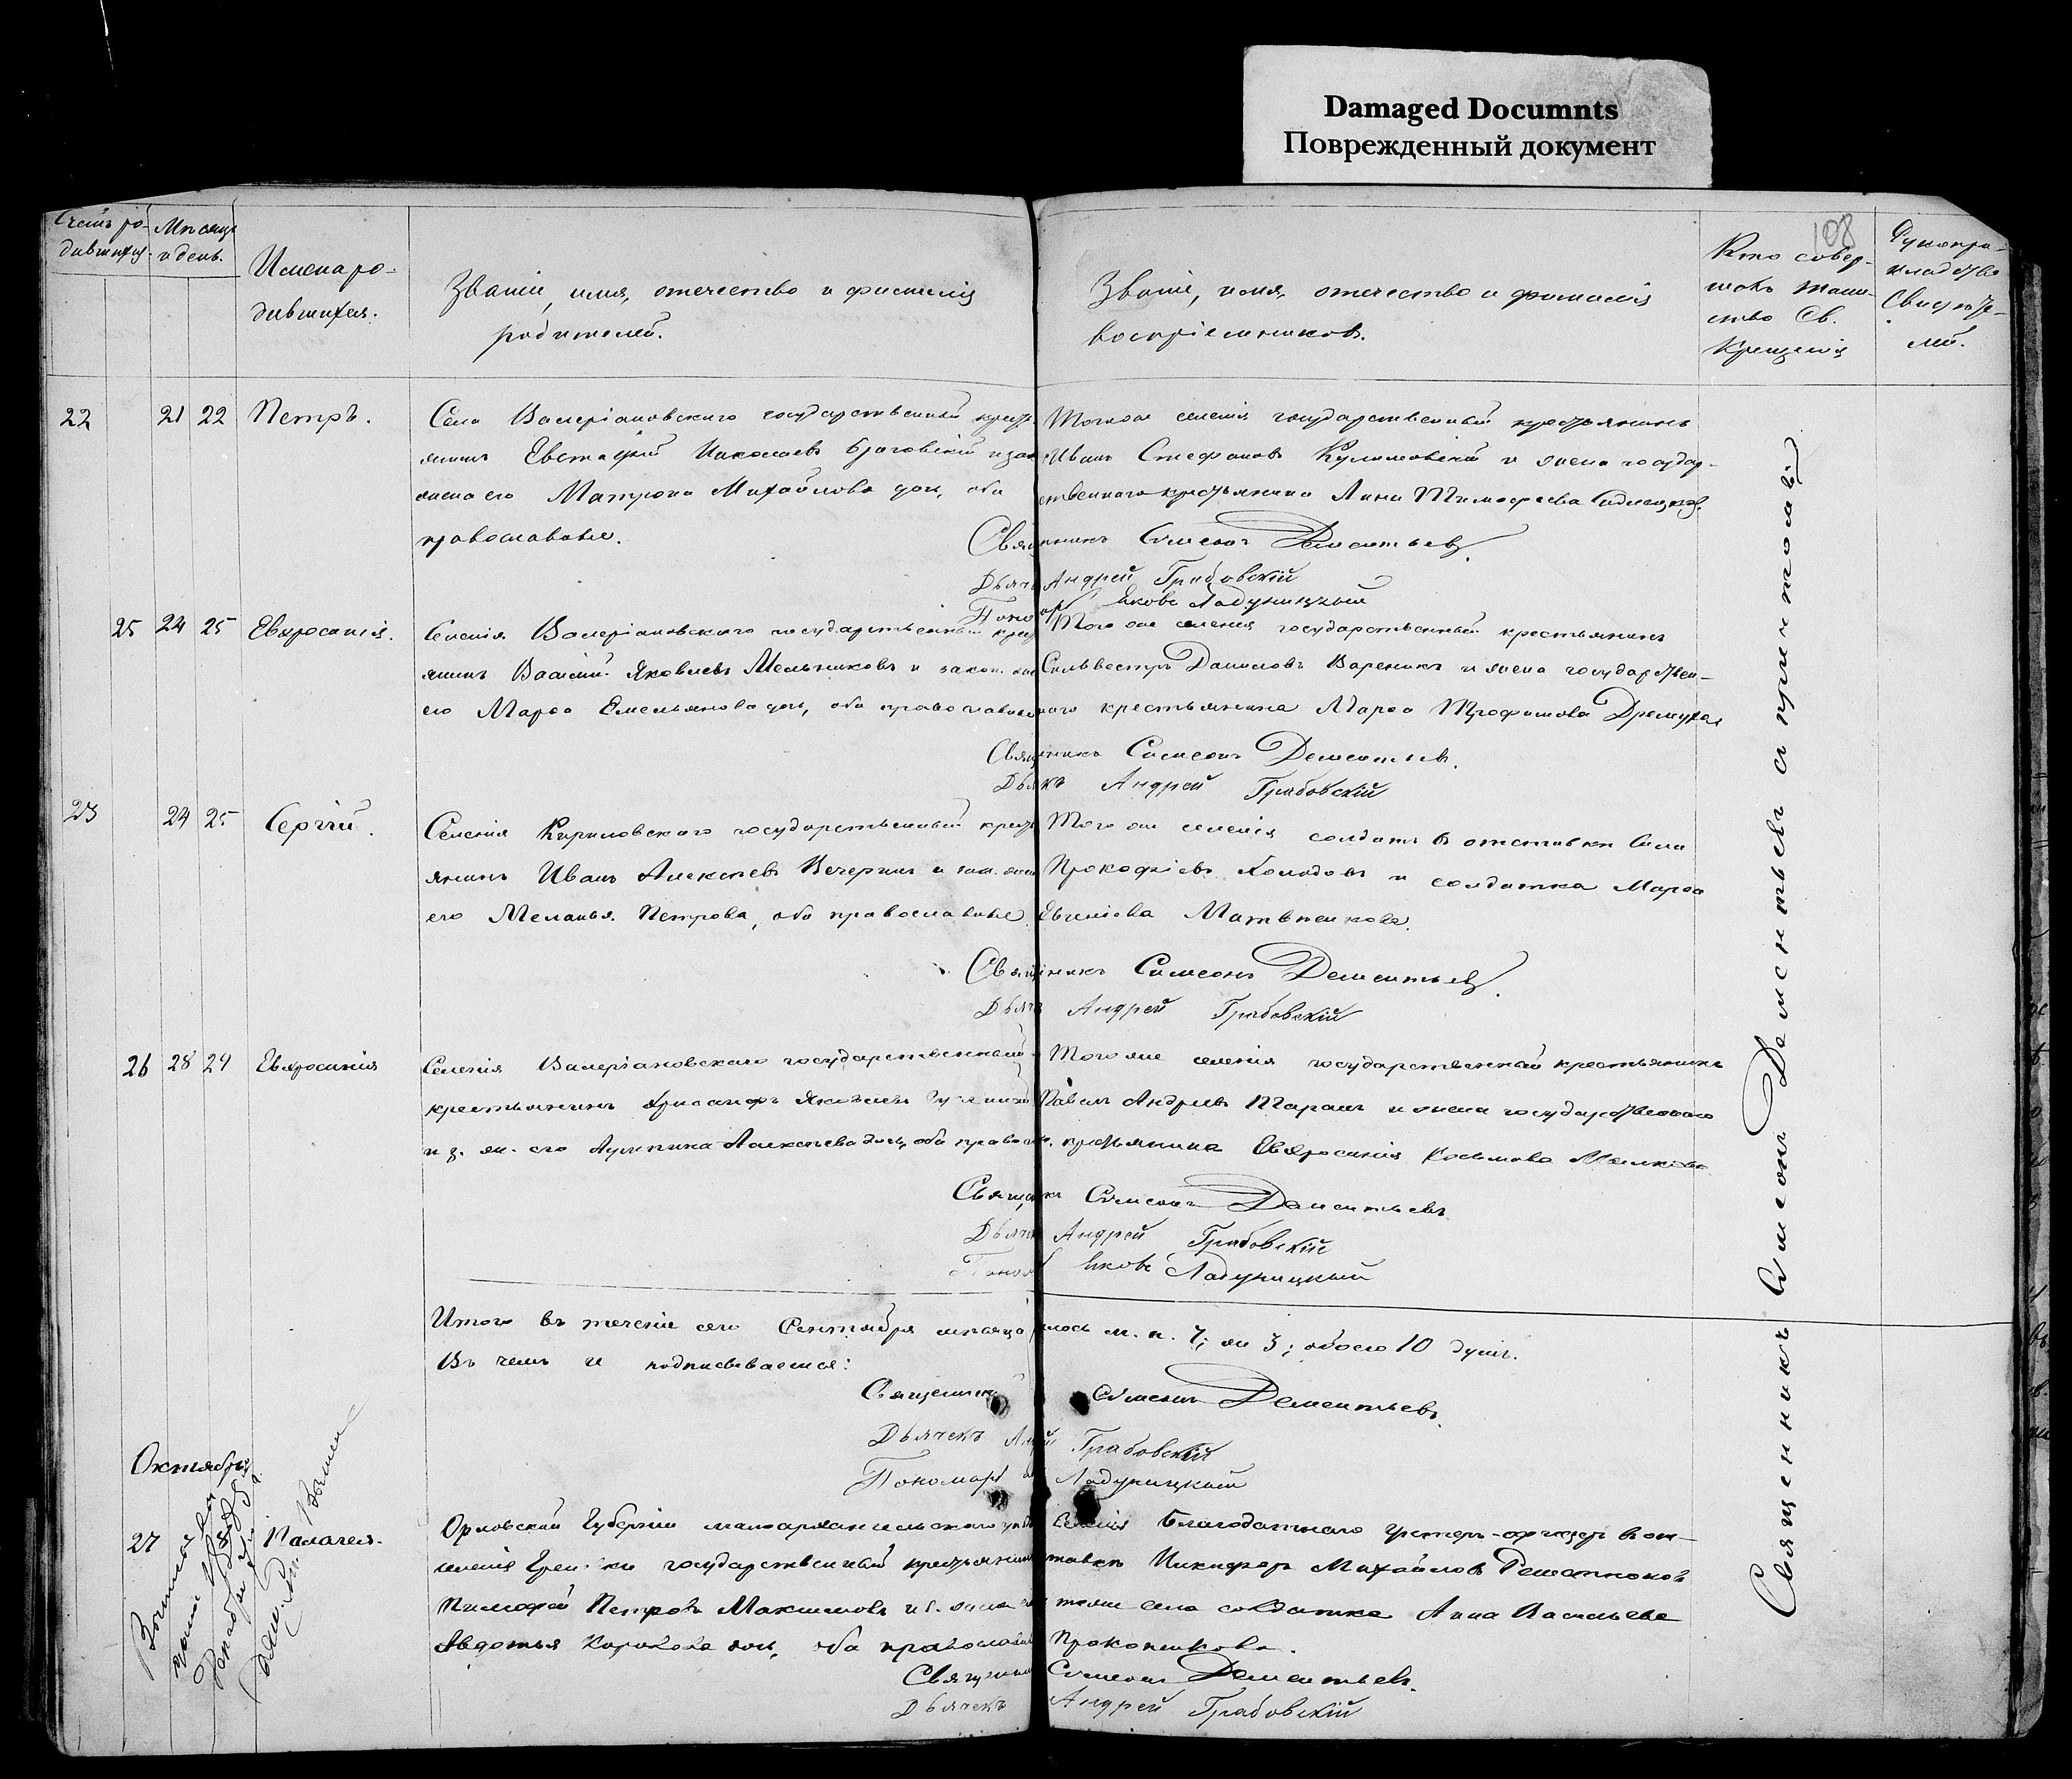 Damaged Documnts
Поврежденный документ
108
Счетъ ро-
дившихся.
Мѣсяцъ
и день.
Имена ро-
дившихся.
Званіе, имя, отечество и фамилія
родителей.
Званіе, имя, отечество и фамилія
воспріемниковъ.
Кто совер-
шалъ таин-
ство Св.
Крещенія
Рукопри-
кладство
Свидѣте-
лей.
22 21 22 Петръ.
Села Валеріановскаго государственный крест
янинъ Евстафій Николаевъ
жена его Матрона Михайлова дочь, оба
православные.
Тогоже селенія государственный крестьянинъ
Иванъ Стефановъ и жена государ-
ственнаго крестьянина Анна Тимофеева
Священникъ Симеонъ Дементьевъ.
Дьячекъ Андрей Грабовскій
Пономарь Яковъ Ладуницкый
25 24 25 Евфросинія.
Селенія Валеріановскаго государственный крест
янинъ Василій Яковлевъ Мельниковъ и закон. жена
его Марфа Емельянова дочь, оба православные
Того же селенія государственный крестьянинъ
Сильвестръ Даниловъ Вареникъ и жена государствен-
наго крестьянина Марфа Трофимова
Священникъ Симеонъ Дементьевъ.
Дьякъ Андрей Грабовскій
23 24 25 Сергій.
Селенія Кириловскаго государственный крест
янинъ Иванъ Алексѣевъ Вечеринъ и зак. жена
его Меланья Петрова, оба православные.
Того же селенія солдатъ в отставки
Прокофіевъ Холодовъ и солдатка Марфа
Евгеніева
Священникъ Симеонъ Дементьевъ.
Дьячекъ Андрей Грабовскій
26 28 29 Евфросинія
Селенія Валеріановскаго государственный
крестьянинъ Яковлевъ
и з. ж. его Алексѣева дочь, оба правосл
Того же селенія государственный крестьянинъ
Павелъ Андріевъ Таранъ и жена государственнаго
крестьянина Евфросинія Косьмова
Священникъ Симеонъ Дементьевъ
Дьячекъ Андрей Грабовскій
Пономарь Яковъ Ладуницкый
Итого въ теченіе сего Сентября мѣсяца родилось м. п. 7; ж 3; обоего 10 душъ.
Въ чемъ и подписываемся:
Священникъ Симеонъ Дементьевъ.
Дьячекъ Андрей Грабовскій
Пономарь Ладуницкый
Октябрь
27 Палагея.
Орловской Губерніи малоархангельскаго уѣзда
селенія государственный крестьянинъ
Петровъ Максимовъ и з. жена его
Авдотья дочь, оба православные
Селенія Благодатнаго унтеръ-офицеръ в от-
ставкѣ Никифоръ Михайловъ Решетняковъ
тоже села солдатка Анна Васильева
Прокопенкова.
Священникъ Симеонъ Дементьевъ.
Дьячекъ Андрей Грабовскій
Священникъ Симеонъ Дементьевъ съ причтомъ